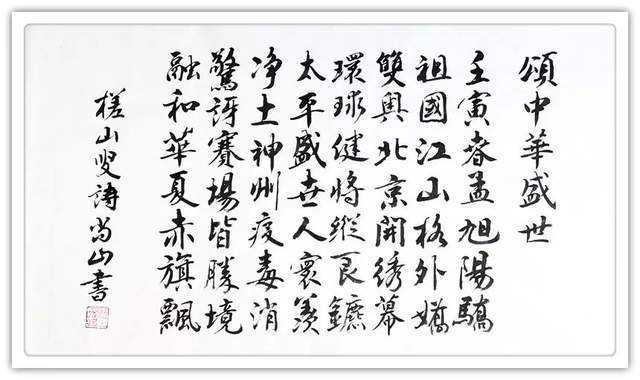 頌中華盛世
壬寅春孟旭陽驕
祖國江山格外嬌
雙奧北京開綉幕
環球健將縱良鑣
太平盛世人寰羨
净土神州疫毒消
驚訝賽場皆勝境
融和華夏赤旗飄
槎山叟詩尚山書